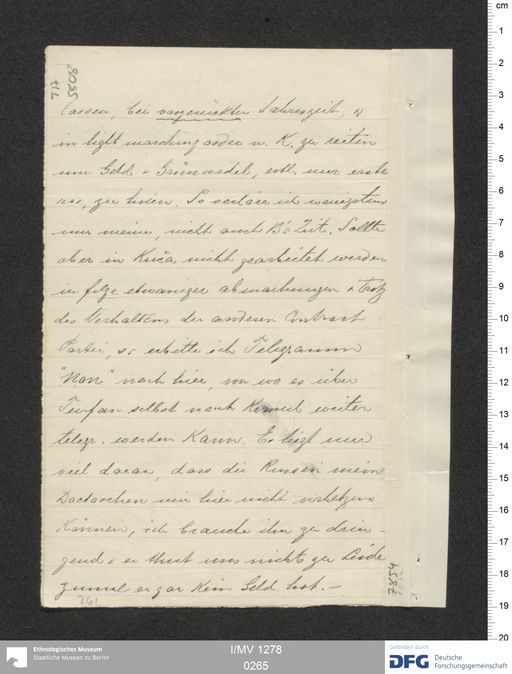 217
5808
lassen, bei vorgerückter Jahreszeit, &
in light marching order n. K. zu reiten
um Geld & Grünwedel, evtl. nur erste
res, zu holen. So verliere ich wenigstens
nur meine, nicht auch B's Zeit. Sollte
aber in Kuča nicht gearbeitet werden
in folge etwaniger abmachungen & trotz
des Verhaltens der anderen Contract
Partei, so erbitte ich Telegramm
"Non" nach hier, von wo es über
Turfan selbst nach Komul weiter
telegr. werden kann. Es liegt mir
viel daran, dass die Russen mein
Bactaschen mir hier nicht
können, ich brauche ihn zu drin-
gend & er thut uns nichts zu Leide
zumal er gar kein Geld hat. —
261
7854
cm
1
2
3
4
5
6
7
8
9
10
11
12
13
14
15
16
17
18
19
20
Ethnologisches Museum
Staatliche Museen zu Berlin
I/MV 1278
0265
Gefördert durch
DFG Deutsche
Forschungsgemeinschaft